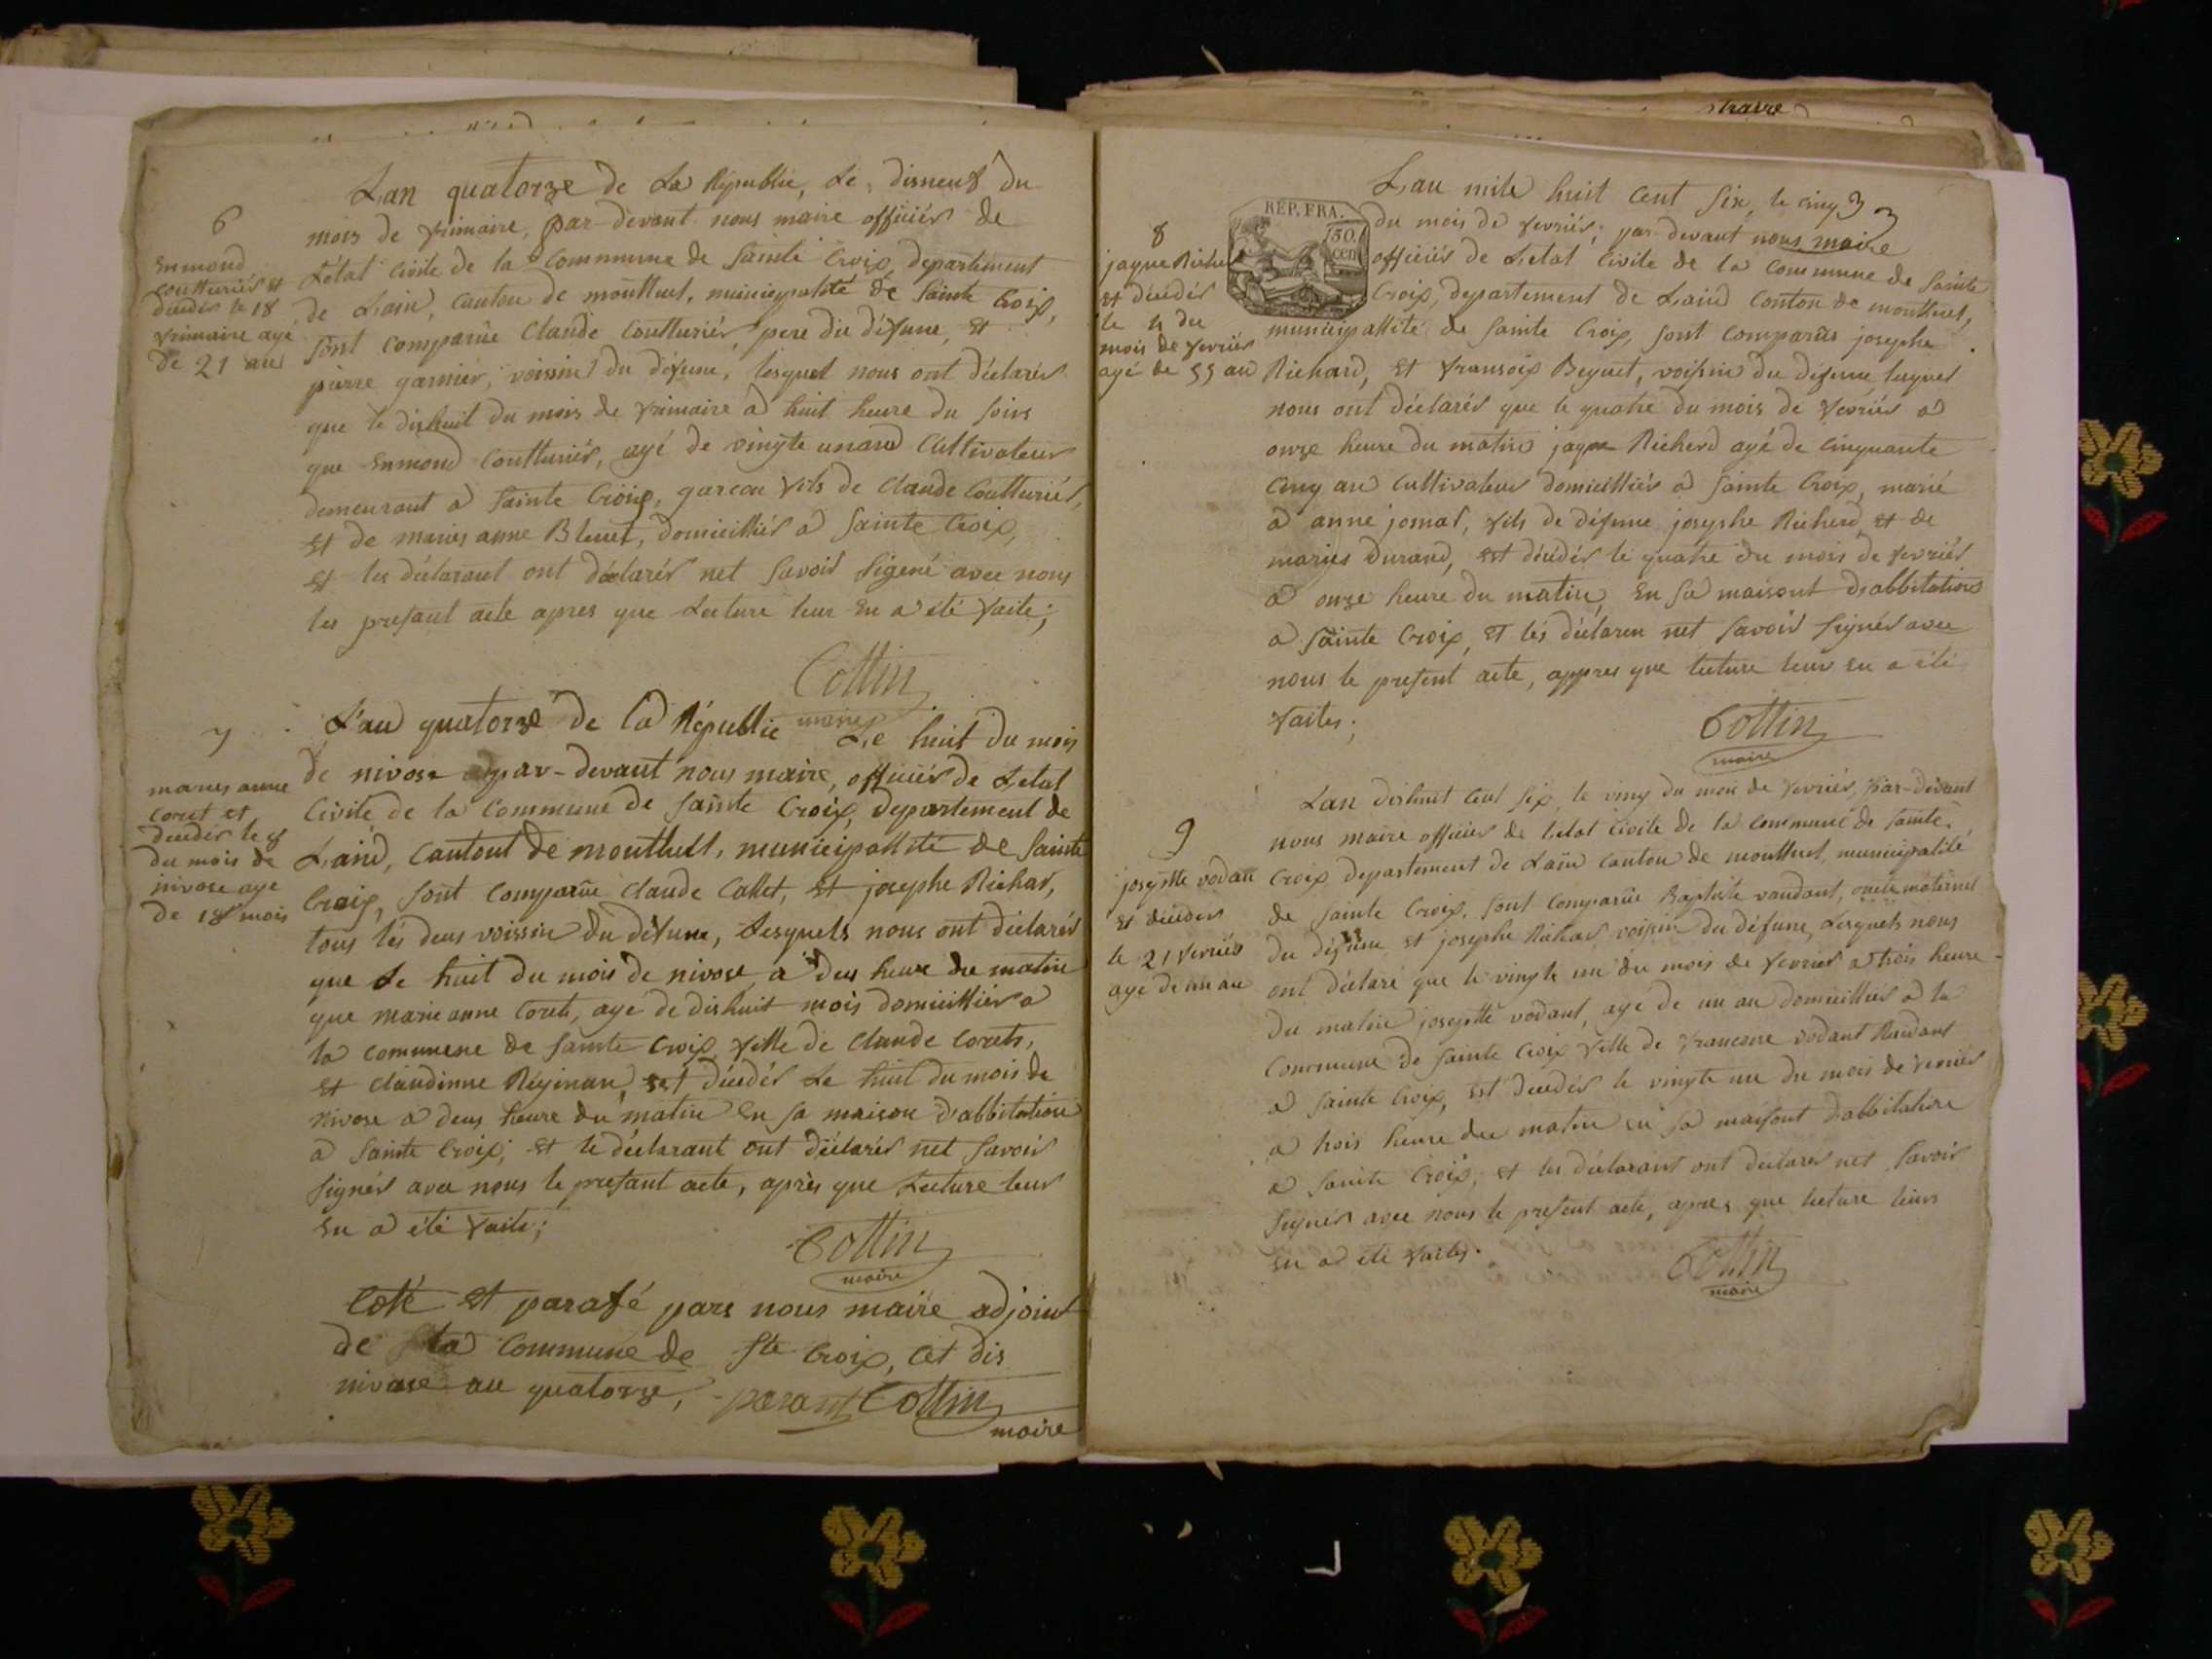 6
Enmond
coutturiér et
décédér le 18
frimaire agé
de 21 an
Lan quatorze de La Républie, Le, disneuf du
mois de frimaire, par-devant nous maire officiér de
Létat Civile de la Commune de Sainte Croix departement
de Lain, Canton de montluel, municipalité de Sainte Croix,
sont comparûe Claude Coutturiér, pere du défune, et
pierre garniér, voissint du défune, lesquel nous ont déclarér
que le dishuit du mois de frimaire a huit heure du soire
que Enmond coutturiér, agé de vingte unand Cultivateur
demeurant a Sainte Croix, garcon fils de Claude Coutturiér,
et de maries anne Blenet, domicilliér a Sainte Croix,
et les déclarant ont déclarér net Savoir Sigené avec nous
les presant acte apres que Lecture leur en a été faite;
Cottin
maire
7
maries anne
coret et
décédér le 8
du mois de
nivose age
de 18 mois
L'an quatorze de La Républie Le huit du mois
de nivose par-devant nous maire, officiér de Letat
Civile de la Commune de Sainte Croix, departement de
Laind, Cantont de montluell, municipallité de Sainte
Croix, sont comparûe Claude Collet, et josephe Richar,
tous lés deus voissin du défune, Lesquels nous ont déclarér
que Le huit du mois de nivose a deus heure du matin
que marie anne Corete, agé de dishuit mois domicilliér a
la commune de Sainte Croix fille de Claude Corets,
et Claudinne Réginan, est décédér Le huit du mois de
nivose a deus heure du matin en sa maison d'abbitation
a Sainte Croix; et le déclarant ont déclarér net Savoir
Signér avec nous le presant acte, après que Lecture leur
en a été faite;
Cottin
maire
Coté et parafé pars nous maire adjoint
de la Commune de Ste Croix, Cet dis
nivose an quatorze, parant Cottin
maire
straire
REP. FRA.
50.
cen
3
8
jaque Riche
et décédér
le 4 du
mois de fevriér
agé de 55 an
Lan mile huit cent six, le cinq
du mois de fevriér; par-devant nous maire
officiér de Letat Civile de la Commune de Sainte
Croix, departement de Laind Conton de montluel,
municipallité de Sainte Croix, sont comparûs josephe
Richard, et fransoix Beguet, voisin du défune lequel
nous ont déclarér que le quatre du mois de fevriér a
onze heure du matin jaque Richerd agé de cinquante
cinq an cultivateur domicilliér a Sainte Croix, marié
a anne jomar, fils de défune josephe Richerd et de
maries Durand, est décédér le quatre du mois de fevriér
a onze heure du matin, en sa maisont d'abbitation
a Sainte Croix, et lés déclaren net savoir Signér avec
nous le present acte, appres que lecture leur en a été
faites;
Cottin
maire
9
josephte vodan
et décéder
le 21 fevriér
agé de un an
Lan dishuit cent six, le ving du mois de fevriér, par-devant
nous maire officier de letat civile de la commune de Sainte
Croix departement de Lain canton de montluel, municipalité
de Sainte Croix, sont comparûe Baptiste vaudant, oncle maternel
du défune et josephe Richar voisin du défune, Lesquels nous
ont déclaré que le vingte un du mois de fevrier a trois heure
du matin josephte vodant, agé de un an domicilliér a la
Commune de Sainte Croix fille de francoise vodant Residant
a Sainte Croix, est décédér le vingte un du mois de fevriér
a trois heure du matin en sa maisont d'abbitation
a Sainte Croix; et les déclarant ont déclarér net Savoir
Signér avec nous le present acte, apres que lecture leurs
en a été faites.
Cottin
maire